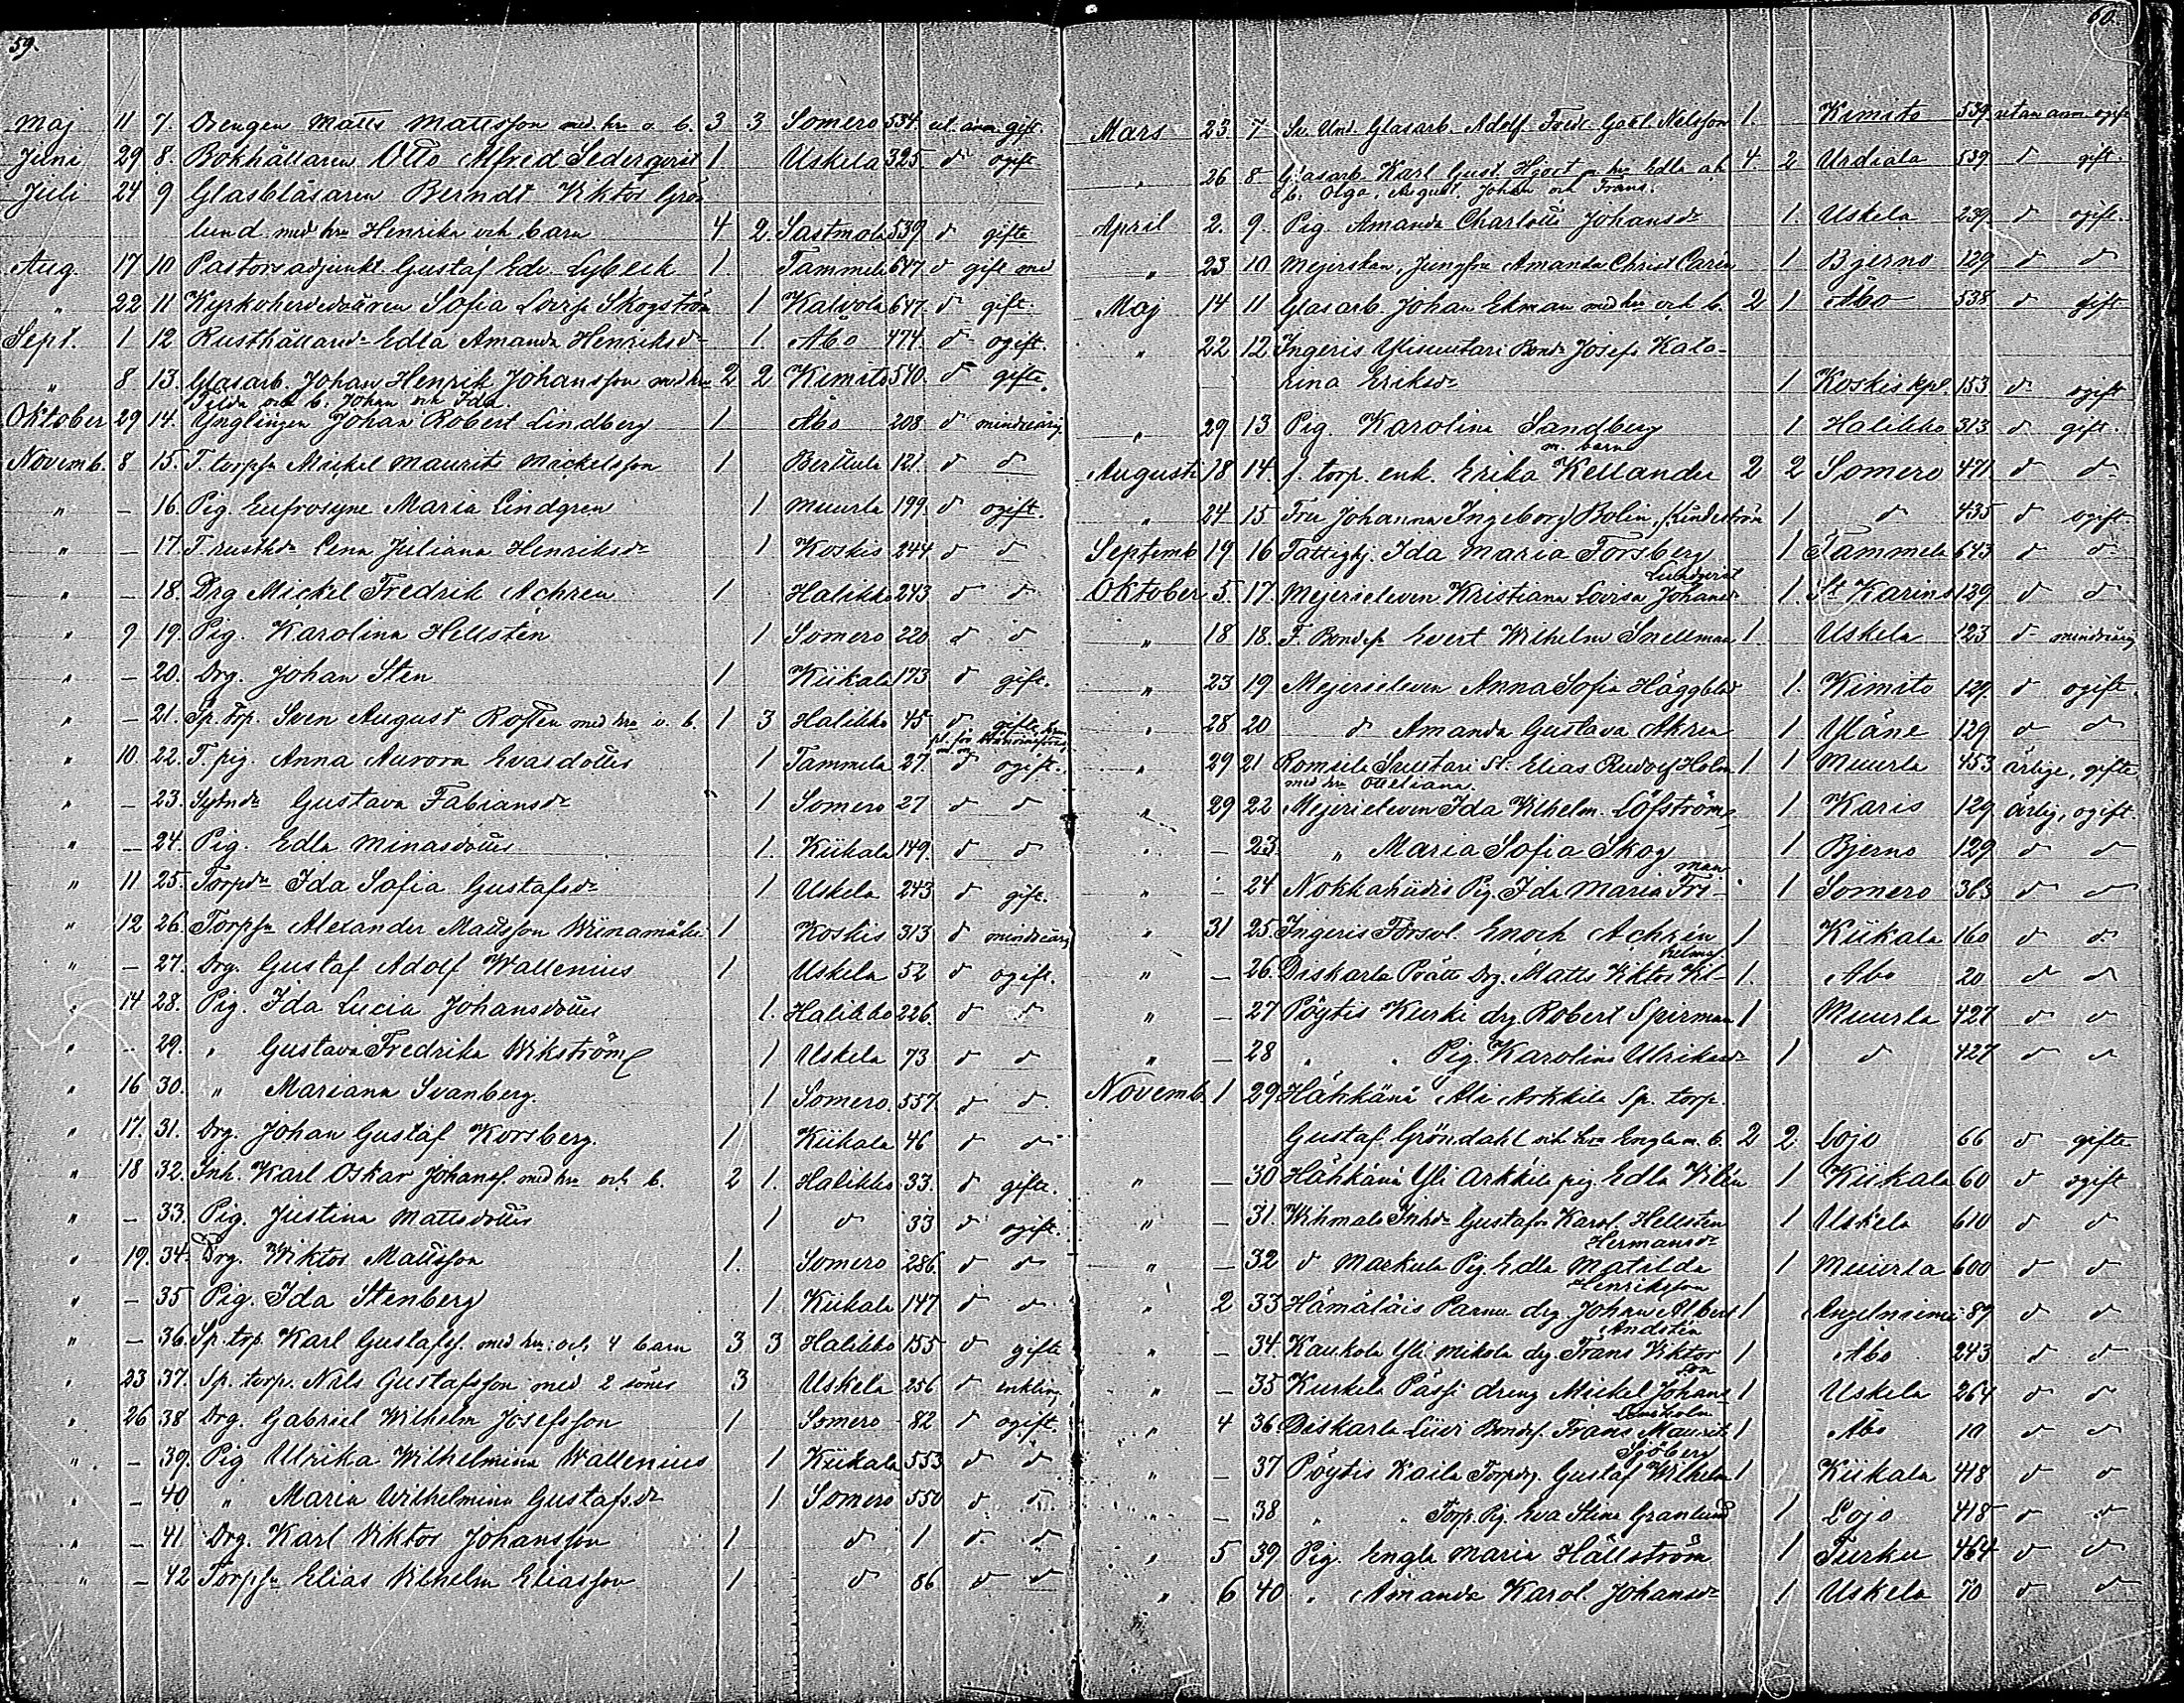 59.
Maj 11 7. Drengen Matts Mattsson med hu o. b. 3 3 Somero 534. ut. anm. gift.
Juni 29 8. Bokhållaren Otto Alfred Sederqvist 1 Uskela 325 d:o ogift
Juli 24 9 Glasblåsaren Berndt Viktor Grön
lund med hu Henrika och barn 4 2. Sastmola 539 d:o gifte
Aug. 17 10 Pastorsadjunkt. Gustaf Edv. Lybeck 1 Tammela 647 d:o gift med
" 22 11 Kyrkoherdedottren Sofia Lovisa Skogström 1 Kalvola 647 d:o gift.
Sept. 1 12 Rusthållared:r Edla Amanda Henriksd:r 1. Åbo 474. d:o ogift.
" 8 13. Glasarb. Johan Henrik Johansson med hu 2 2 Kimito 540. d:o gifte.
och b. Johan och Ida.
Oktober 29 14. Ynglingen Johan Robert Lindberg 1 Åbo 208 d:o minderårig
Novemb. 8 15. T. torpsn Mickel Maurits Mickelsson 1 Berttula 121. d:o d:o
" – 16. Pig. Eufrosyne Maria Lindgren 1 Muurla 199. d:o ogift
" – 17. T. rusthd:r Lena Juliana Henriksd:r 1 Koskis 244 d:o d:o
" – 18. Drg Mickel Fredrik Achren 1 Halikko 243 d:o d:o
" 9 19. Pig. Karolina Hellsten 1 Somero 220. d:o d:o
" – 20. Drg. Johan Sten 1 Kiikala 173 d:o gift.
" – 21. Sp. torp. Sven August Rosten med hu o. b. 1 3 Halikko 45 d:o gifte
" 10. 22. T. pig. Anna Aurora Evasdotter 1 Tammela 27. d:o ogift.
" – 23. Sytnd:r Gustava Fabiansd:r 1 Somero 27 d:o d:o
" – 24. Pig. Edla Minasdotter 1. Kiikala 149. d:o d:o
" 11 25. Torpd:r Ida Sofia Gustafsd:r 1 Uskela 243 d:o gift.
" 12 26. Torpsn Alexander Mattsson Wiinamäki 1 Koskis 313 d:o minderårig
" – 27. Drg. Gustaf Adolf Wallenius 1 Uskela 52 d:o ogift.
" 14 28. Pig. Ida Lucia Johansdotter 1. Halikko 226. d:o d:o
" – 29. " Gustava Fredrika Wikström 1 Uskela 73 d:o d:o
" 16 30. " Mariana Svanberg. 1 Somero. 557 d:o d:o
" 17. 31. Drg. Johan Gustaf Korsberg. 1 Kiikala 46 d:o d:o
" 18 32. Inh. Karl Oskar Johanss. med hu och b. 2 1. Halikko 33. d:o gifte.
" – 33. Pig. Justina Mattsdotter 1 d:o 33 d:o ogift.
" 19. 34. Drg. Wiktor Mattsson 1. Somero 286. d:o d:o
" – 35 Pig. Ida Stenberg 1. Kiikala 147 d:o d:o
" – 36. Sp. torp. Karl Gustafss. med hu. och 4 barn 3 3 Halikko 155 d:o gifte
" 23 37. Sp. torp. Nils Gustafsson med 2 söner 3 Uskela 256 d:o enkling
" 26 38 Drg. Gabriel Wilhelm Josefsson 1 Somero 82 d:o ogift.
" – 39. Pig Ulrika Wilhelmina Wallenius 1 Kiikala 553 d:o d:o
" – 40 " Maria Wilhelmina Gustafsd:r 1 Somero 550 d:o d:o
" – 41 Drg. Karl Viktor Johansson 1 d:o 1 d:o d:o
" – 42 Torpsn Elias Vilhelm Eliasson 1 d:o 86 d:o d:o
60.
Mars 23 7 Glasarb. Adolf Fredr. Gabl. Nilsson 1. Kimito 539 utan anm ogift
" 26 8 Glasarb. Karl Gust. Hjort m. hu Edla och 4. 2 Urdiala 539 d:o gift.
b. Olga, August, Johan och Frans.
April 2. 9. Pig. Amanda Charlotta Johansd:r 1. Uskela 239. d:o ogift.
" 23 10 Mejerskan, Jungfru Amanda Christ Carin 1 Bjerno 129 d:o d:o
Maj 14 11 Glasarb. Johan Ekman med hu och b. 2 1 Åbo 538 d:o gift
" 22 12 Ingeris Ylisuutari Bond:r Josefa Kata-
rina Eriksd:r 1 Koskis kpl. 153 d:o ogift
" 29 13 Pig. Karolina Sandberg 1 Halikko 313 d:o gift.
Augusti 18 14. f. torp. enk. Erika Kellander m. barn 2 2 Somero 471 d:o d:o
" 24 15 Fru Johanna Ingeborg Bolin, f. Lindström 1 d:o 435 d:o ogift.
Septemb 19 16 Fattighj. Ida Maria Forsberg 1 Tammela 643 d:o d:o
Oktober 5. 17. Mejerieleven Kristiana Lovisa Johansd:r Lundqvist 1. S:t Karins 129 d:o d:o
" 18 18. F. Bondes. Evert Wilhelm Snellman 1 Uskela 123 d:o minderårig
" 23 19 Mejerieleven Anna Sofia Häggblad 1. Kimito 129. d:o ogift.
" 28 20 d:o Amanda Gustava Akren 1 Yläne 129 d:o d:o
" 29 21 Romsila Suutari St. Elias Rudolf Holm 1 1 Muurla 453 ärlige, gifte
med hu Ottiliana.
" 29 22 Mejerieleven Ida Wilhelm. Löfström 1 Karis 129 ärlig, ogift.
" – 23. " Maria Sofia Skog 1 Bjerno 129 d:o d:o
" – 24 Nokkahiidis Pig. Ida Maria Fri- man 1 Somero 363 d:o d:o
" 31 25. Ingeris Enoch Achrén 1 Kiikala 160 d:o d:o
" – 26. Diskarla Prätti Drg. Matts Viktor Vil- helmss. 1. Åbo 20 d:o d:o
" – 27 Pöytis Kurki drg. Robert Spirman 1 Muurla 427 d:o d:o
" – 28 " " Pig. Karolina Ulriksd:r 1 d:o 427 d:o d:o
Novemb. 1 29. Häkkänä Ali Arkkila Sp. torp.
Gustaf Gröndahl och hu Engla m. b. 2 2 Lojo 66 d:o gifte
" – 30 Häkkänä Yli Arkkila pig. Edla Vilén 1 Kiikala 60 d:o ogift
" – 31. Wihmalo Inhd:r Gustafva Karol. Hellsten 1 Uskela 610 d:o d:o
" – 32 d:o Markula Pig. Edla Matilda Hermansd:r 1 Muurla 600 d:o d:o
" 2 33 Hämäläis Pannu drg. Johan Albert Henriksson 1 Angelniemi 89 d:o d:o
" – 34. Kaukola Yli Mikola dg. Frans Viktor Andstén 1 Åbo 243 d:o d:o
" – 35 Kurkela Pässi dreng Mickel Johans- son 1 Uskela 264 d:o d:o
" 4 36 Diskarla Liuri Bondes. Frans Maurits 1 Åbo 10 d:o d:o
" – 37 Pöytis Kaila Torpdg. Gustaf Wilhelm Sjöberg 1 Kiikala 418 d:o d:o
" – 38 " " Torp. Pig. Eva Stina Granlund 1 Lojo 418 d:o d:o
" 5 39 Pig. Engla Maria Hällström 1 Turku 464 d:o d:o
" 6 40 " Amanda Karol. Johansd:r 1 Uskela 70 d:o d:o